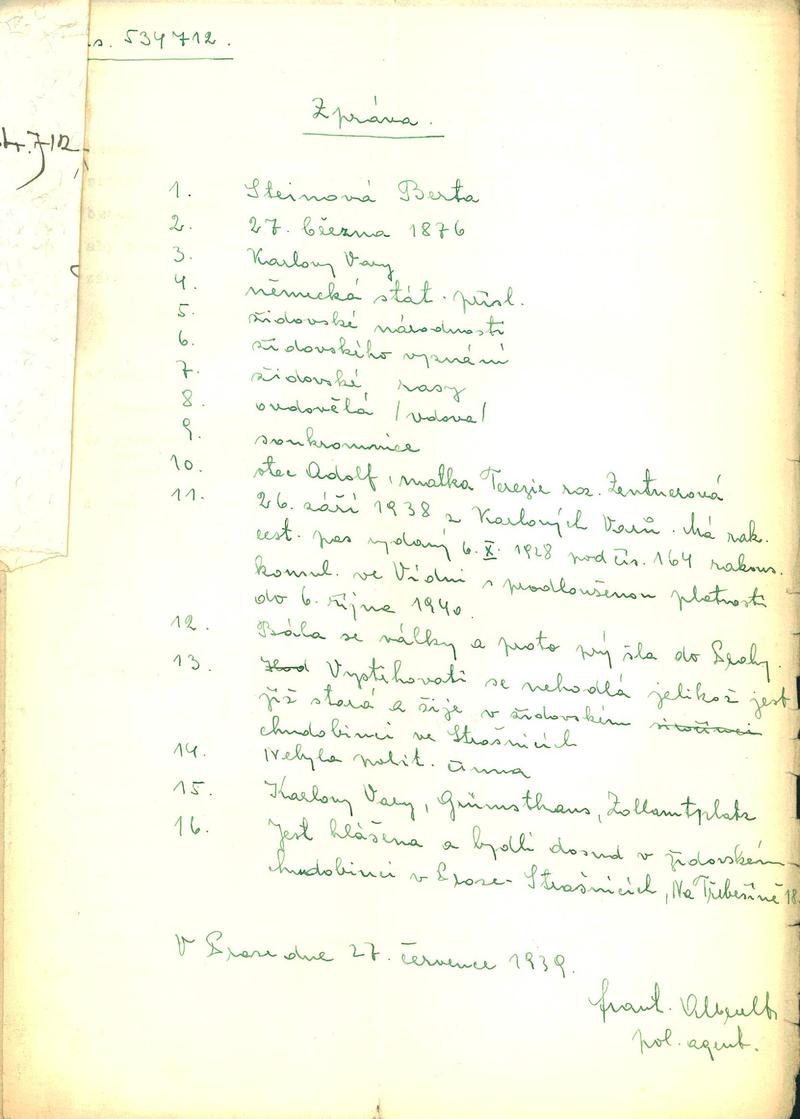 s. 534712.
Zpráva.
tr. 712
1. Steinová Berta
2. 27. března 1876
3. Karlovy Vary
4. německá stát. přísl.
5. židovské národnosti
6. židovského vyznání
7. židovské rasy
8. ovdovělá /vdova/
9. soukromnice
10. otec Adolf, matka Terezie roz. Zentnerová
11. 26. září 1938 z Karlových Varů. Má rak.
cest. pas vydaný 6. X. 1928 pod čís. 164 rakous.
konsul. ve Vídni s prodlouženou platností
do 6. října 1940.
12. Bála se války a proto prý šla do Prahy.
13. Vystěhovati se nehodlá jelikož jest
již stará a žije v židovském sirotčinci
chudobinci ve Strašnicích
14. Nebyla polit. činna
15. Karlovy Vary, Zollamtplatz
16. Jest hlášena a bydlí dosud v židovském
chudobinci v Praze - Strašnicích, Na Třebešíně 18.
V Praze dne 27. července 1939.
frant.
pol. agent.